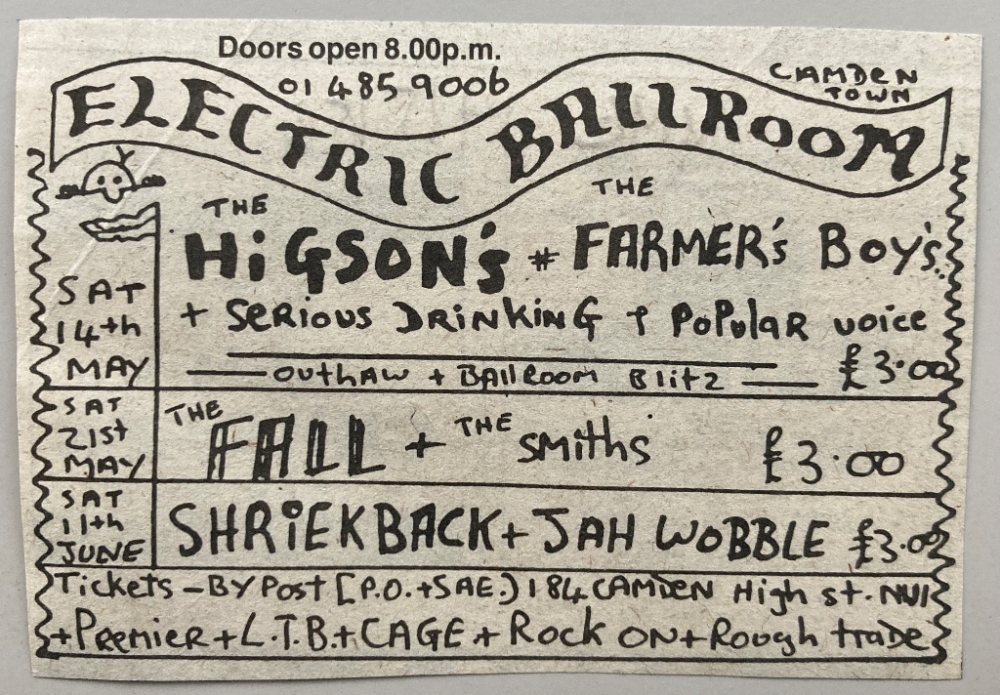 Doors open 8.00p.m.
01 485 9006
CAMDEN
TOWN
ELECTRIC BALLROOM
SAT
14th
MAY
THE HiGSON's * THE FARMER's BOY's..
+ SERiOUS DRiNKiNG + POPulAR voice
OUTHAW + BAllROOM BlitZ
£3.00
SAT
21st
MAY
THE FAll + THE SMiths £3.00
SAT
11th
JUNE
SHRiEKBACK + JAH WOBBLE £3.00
Tickets - BY Post [P.O. + SAE.) 184 CAMDEN High st. NW1
+ PREMiER + L.T.B. + CAGE + Rock ON + Rough tradE